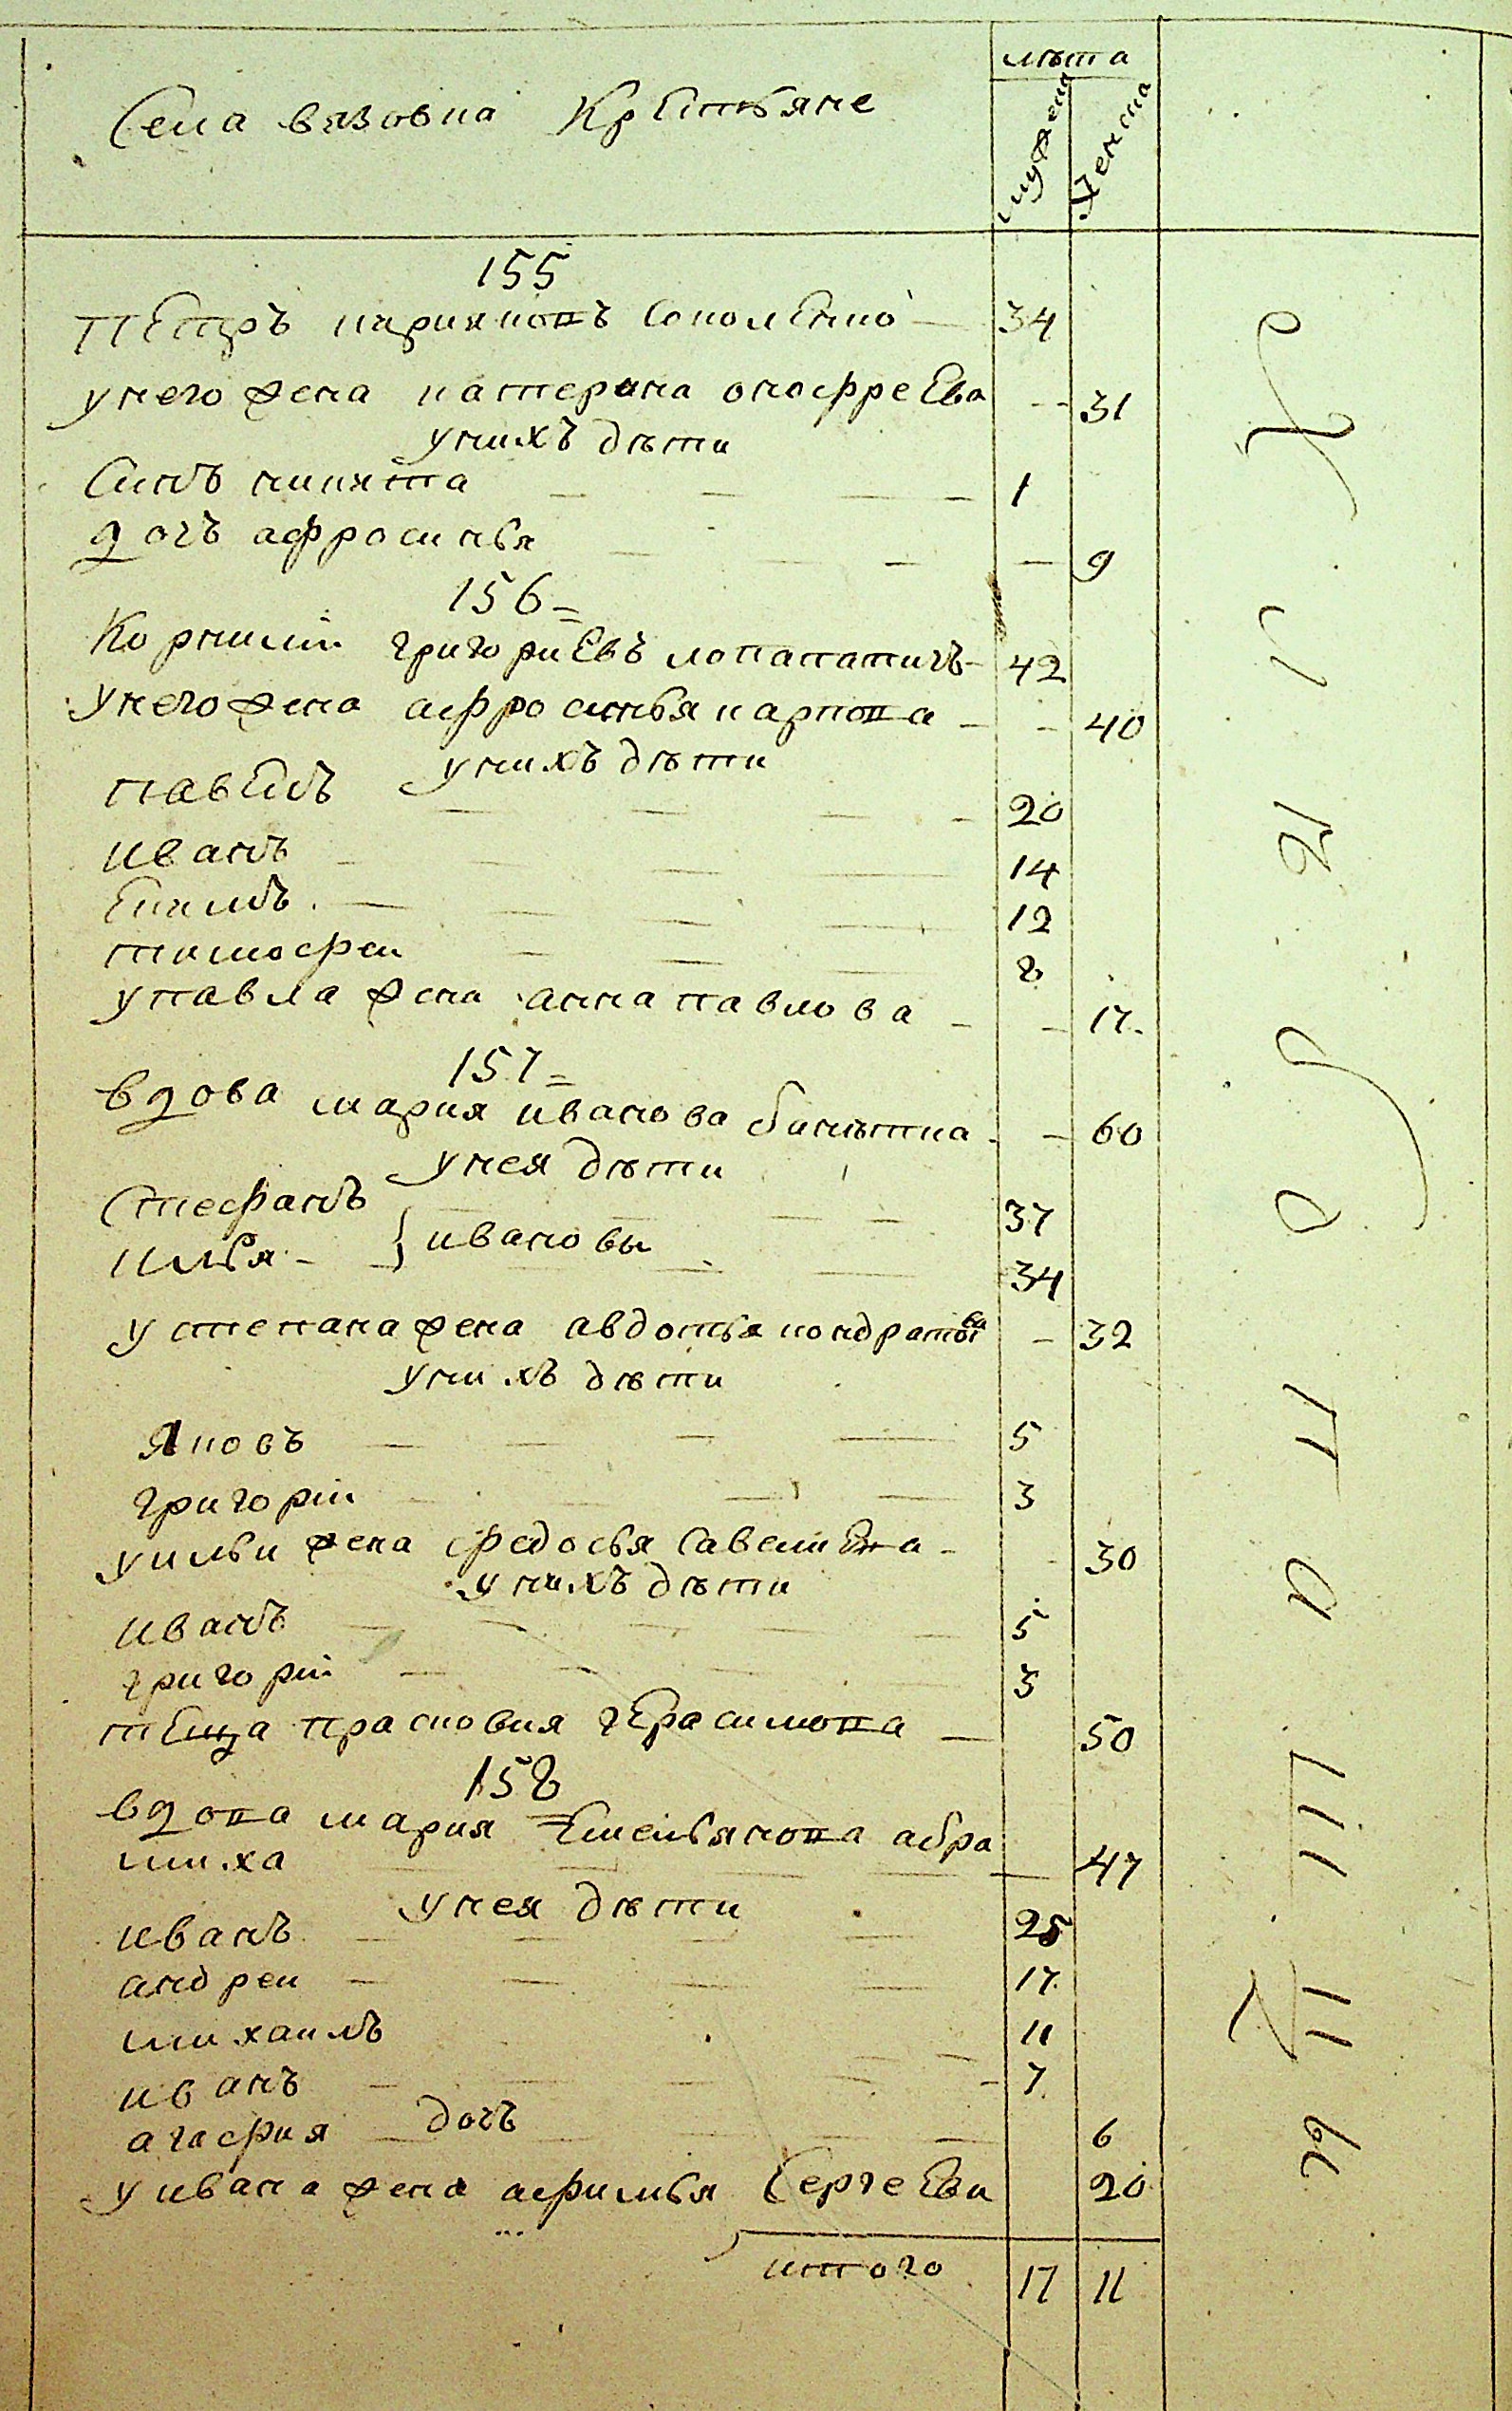 лѣта
Села вязовка Крестьяне
мужска
женска
155
Петръ иларионовъ 34
у него жена катерина онофреева 31
у нихъ дѣти
Синъ никита 1
дочъ афросинья 9
156
Корнилий григориевъ лопататичъ 42
У него жена афросинья карпова 40
у нихъ дѣти
павелъ 20
иванъ 14
Екимъ 12
тимофеи 8
у павла жена анна павлова 17
157
вдова мария иванова 60
у нея дѣти
Стефанъ 37
илья } ивановы 34
у степана жена авдотья кондратова 32
у нихъ дѣти
Яковъ 5
григорий 3
у ильи жена федосья Савелиева 30
у нихъ дѣти
иванъ 5
григорий 3
теща прасковия герасимова 50
158
вдова мария Емельянова абра
миха 47
у нея дѣти
иванъ 25
андреи 17
михаилъ 11
иванъ 7
агафия дочъ 6
у ивана жена афимья Сергеева 20
итого 17 11